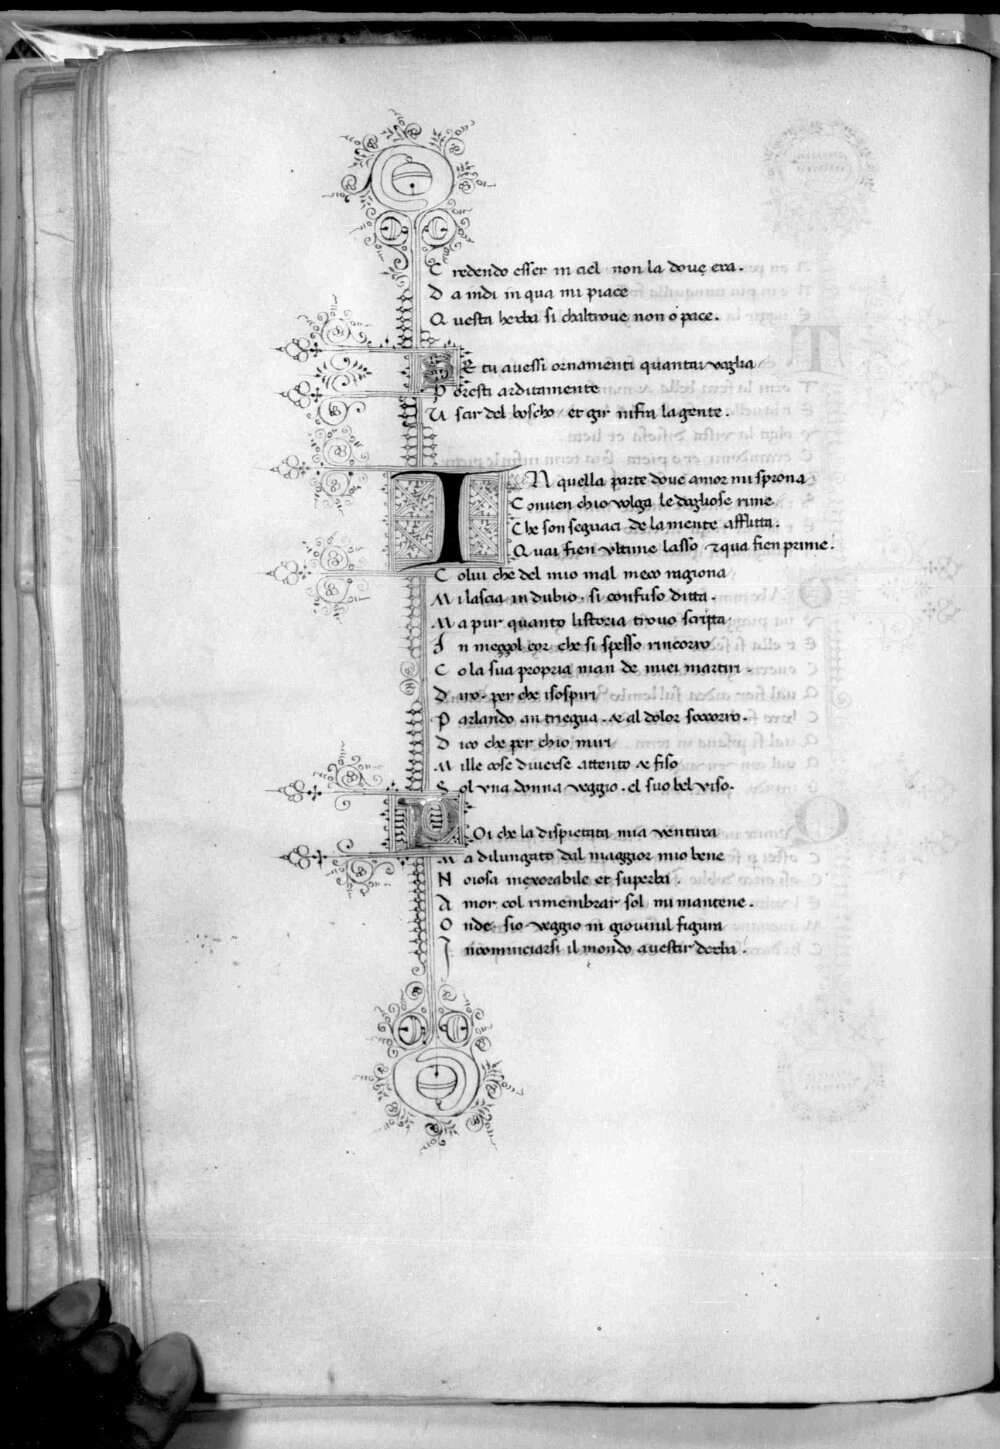 C redendo esser in ciel non la doue era.
D a indi in qua mi piace
Q uesta herba si chaltroue non o pace.
SE tu auessi ornamenti quantai uoglia
P oresti arditamente
U scir del boscho et gir infra la gente.
IN quella parte doue amor mi sprona
C onuen chio uolga le dogliose rime
C he son seguaci de la mente afflitta.
Q uai fien vltime lasso ⁊ qua fien prime.
C olui che del mio mal meco ragiona
M i lascia in dubio. si confuso ditta.
M a pur quanto listoria trouo scripta
I n meççol cor che si spesso rincorro
C o la sua propria man de miei martiri.
D iro. per che isospiri
P arlando an triegua. & al dolor soccorro.
D ico che per chio miri
M ille cose diuerse attento & fiso
S ol vna donna ueggio. el suo bel viso.
POi che la dispietata mia ventura
M a dilungato dal maggior mio bene
N oiosa inexorabile et superba.
A mor col rimembrar sol mi mantene.
O nde sio ueggio in giouinil figura
I ncominciarsi il mondo a uestir derba.